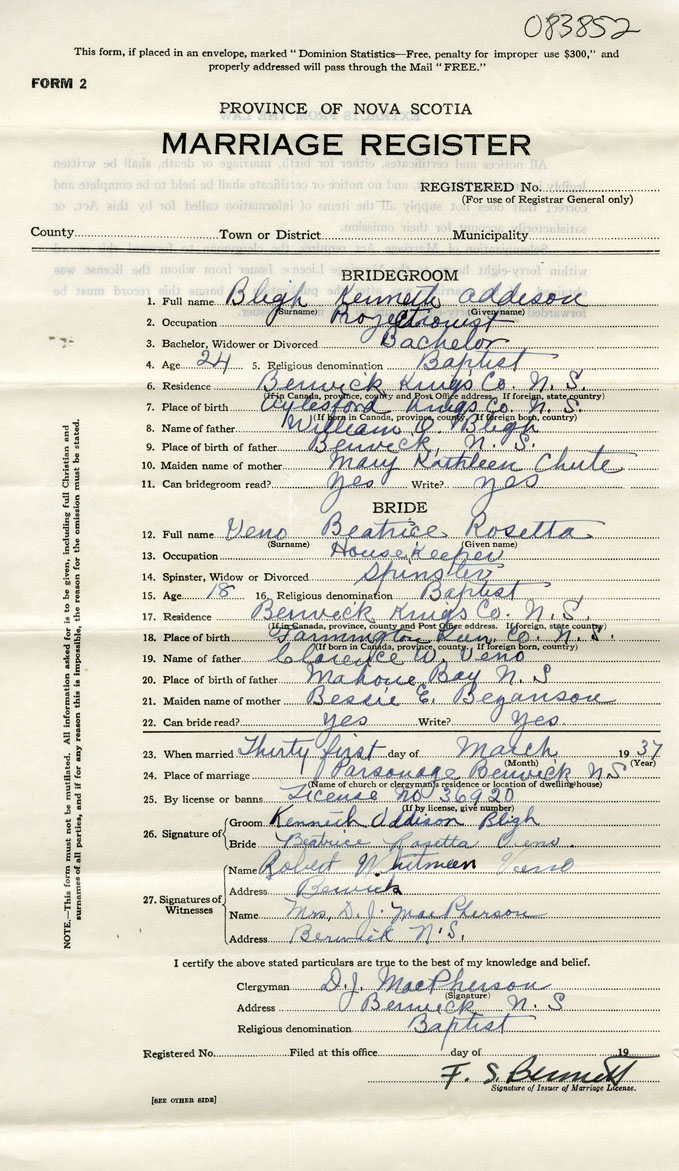 083852
This form, if placed in an envelope, marked "Dominion Statistics—Free, penalty for improper use $300," and
properly addressed will pass through the Mail "FREE."
FORM 2
PROVINCE OF NOVA SCOTIA
MARRIAGE REGISTER
REGISTERED No.
(For use of Registrar General only)
County Town or District Municipality
BRIDEGROOM
1. Full name Bligh Kenneth Addison
(Surname) (Given name)
2. Occupation Projectionist
3. Bachelor, Widower or Divorced Bachelor
4. Age 24 5. Religious denomination Baptist
6. Residence Berwick Kings Co. N. S.
(If in Canada, province, county and Post Office address. If foreign, state country)
7. Place of birth Aylesford Kings Co. N. S.
(If born in Canada, province, county. If foreign born, country)
8. Name of father William O. Bligh
9. Place of birth of father Berwick, N. S.
10. Maiden name of mother Mary Kathleen Chute
11. Can bridegroom read? Yes Write? yes
BRIDE
12. Full name Veno Beatrice Rosetta
(Surname) (Given name)
13. Occupation Housekeeper
14. Spinster, Widow or Divorced Spinster
15. Age 18 16. Religious denomination Baptist
17. Residence Berwick Kings Co. N. S.
(If in Canada, province, county and Post Office address. If foreign, state country)
18. Place of birth Farmington Lun. Co. N. S.
(If born in Canada, province, county. If foreign born, country)
19. Name of father Clarence W. Veno
20. Place of birth of father Mahone Bay N. S
21. Maiden name of mother Bessie E. Beganson
22. Can bride read? yes Write? Yes.
23. When married Thirty first day of March 1937
(Month) (Year)
24. Place of marriage Parsonage Berwick NS
(Name of church or clergyman's residence or location of dwelling house)
25. By license or banns License no 36920
(If by license, give number)
26. Signature of { Groom Kenneth Addison Bligh
Bride Beatrice Rosetta Veno.
27. Signatures of Witnesses { Name Robert Whitman Veno
Address Berwick
Name Mrs. D. J. MacPherson
Address Berwick N. S.
I certify the above stated particulars are true to the best of my knowledge and belief.
Clergyman D. J. MacPherson
(Signature)
Address Berwick N. S
Religious denomination Baptist
Registered No. Filed at this office day of 19
F. S. Bennett
Signature of Issuer of Marriage License.
[SEE OTHER SIDE]
NOTE.—This form must not be mutilated. All information asked for is to be given, including full Christian and
surnames of all parties, and if for any reason this is impossible, the reason for the omission must be stated.